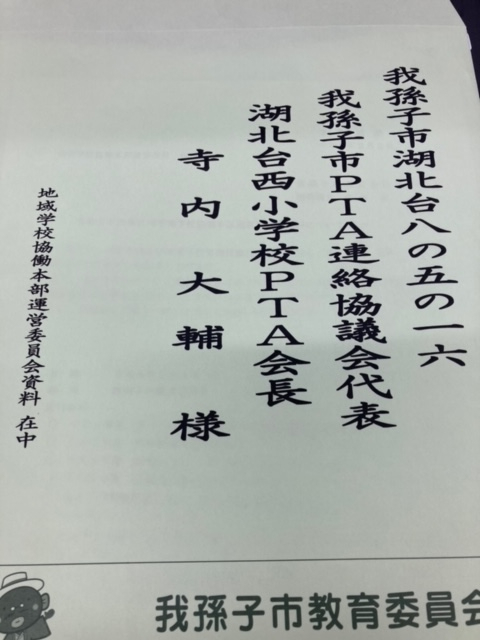 我孫子市湖北台八の五の一六
我孫子市PTA連絡協議会代表
湖北台西小学校PTA会長
寺内大輔様
地域学校協働本部運営委員会資料 在中
我孫子市教育委員会